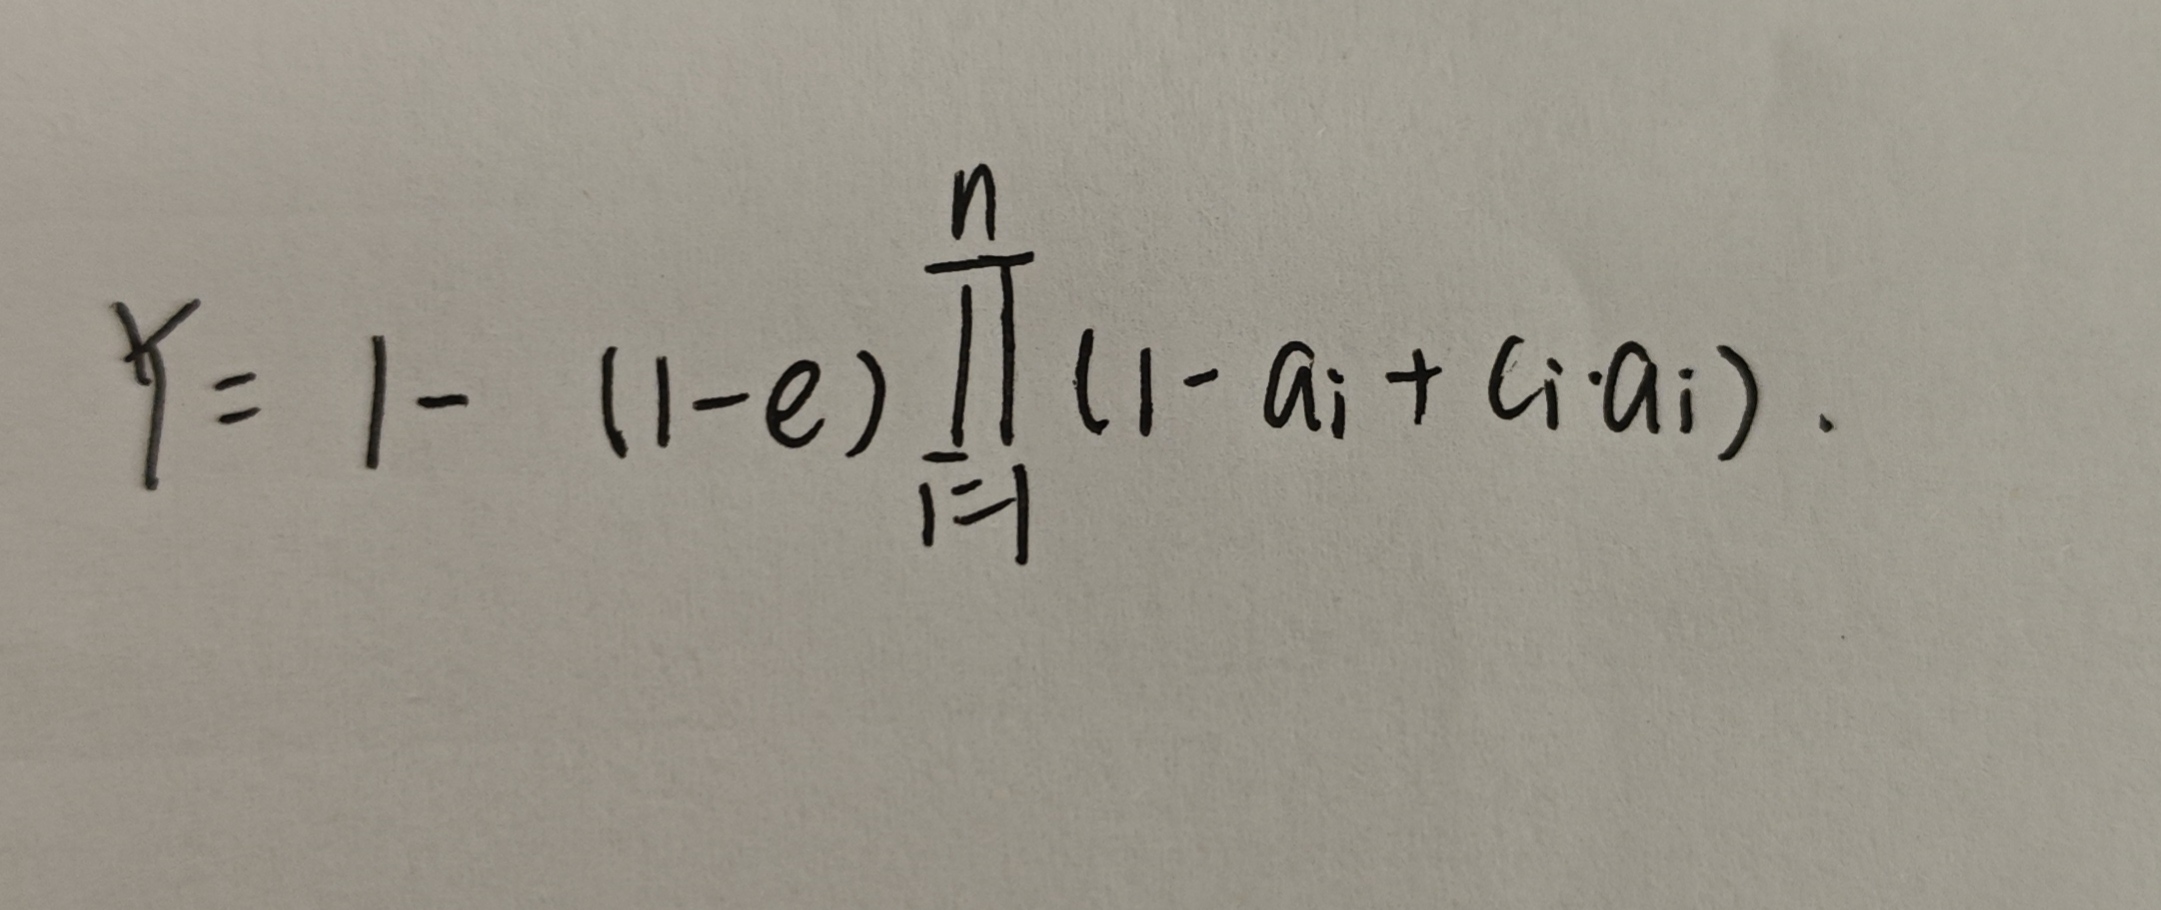 Y = 1 - (1-e) ∏_{i=1}^{n} (1 - a_i + c_i·a_i).